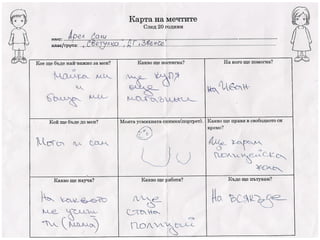 Карта на мечтите
След 20 години
име: Арея Сат
клас/група: „Светулка", ДГ „Звънче"
Кое ще бъде най важно за мен?
Какво ще постигна?
На кого ще помогна?
Майка ми
и
баща ми
ще купя
още
магазини
На Иван
Кой ще бъде до мен?
Моята усмихната снимка/портрет.
Какво ще правя в свободното си
време?
Моги и сам
Ще карам
полицейска
кола
Какво ще науча?
Какво ще работя?
Къде ще пътувам?
На каквото
ме учиш
ти (мама)
ще
стана
полицай
На всякъде